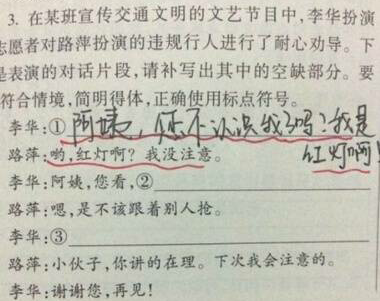 3. 在某班宣传交通文明的文艺节目中,李华扮演
志愿者对路萍扮演的违规行人进行了耐心劝导。下
是表演的对话片段,请补写出其中的空缺部分。要
符合情境,简明得体,正确使用标点符号。
李华:①阿姨,你不认识我了吗?我是
红灯啊!
路萍:哟,红灯啊?我没注意。
李华:阿姨,您看,②
路萍:嗯,是不该跟着别人抢。
李华:③
路萍:小伙子,你讲的在理。下次我会注意的。
李华:谢谢您,再见!